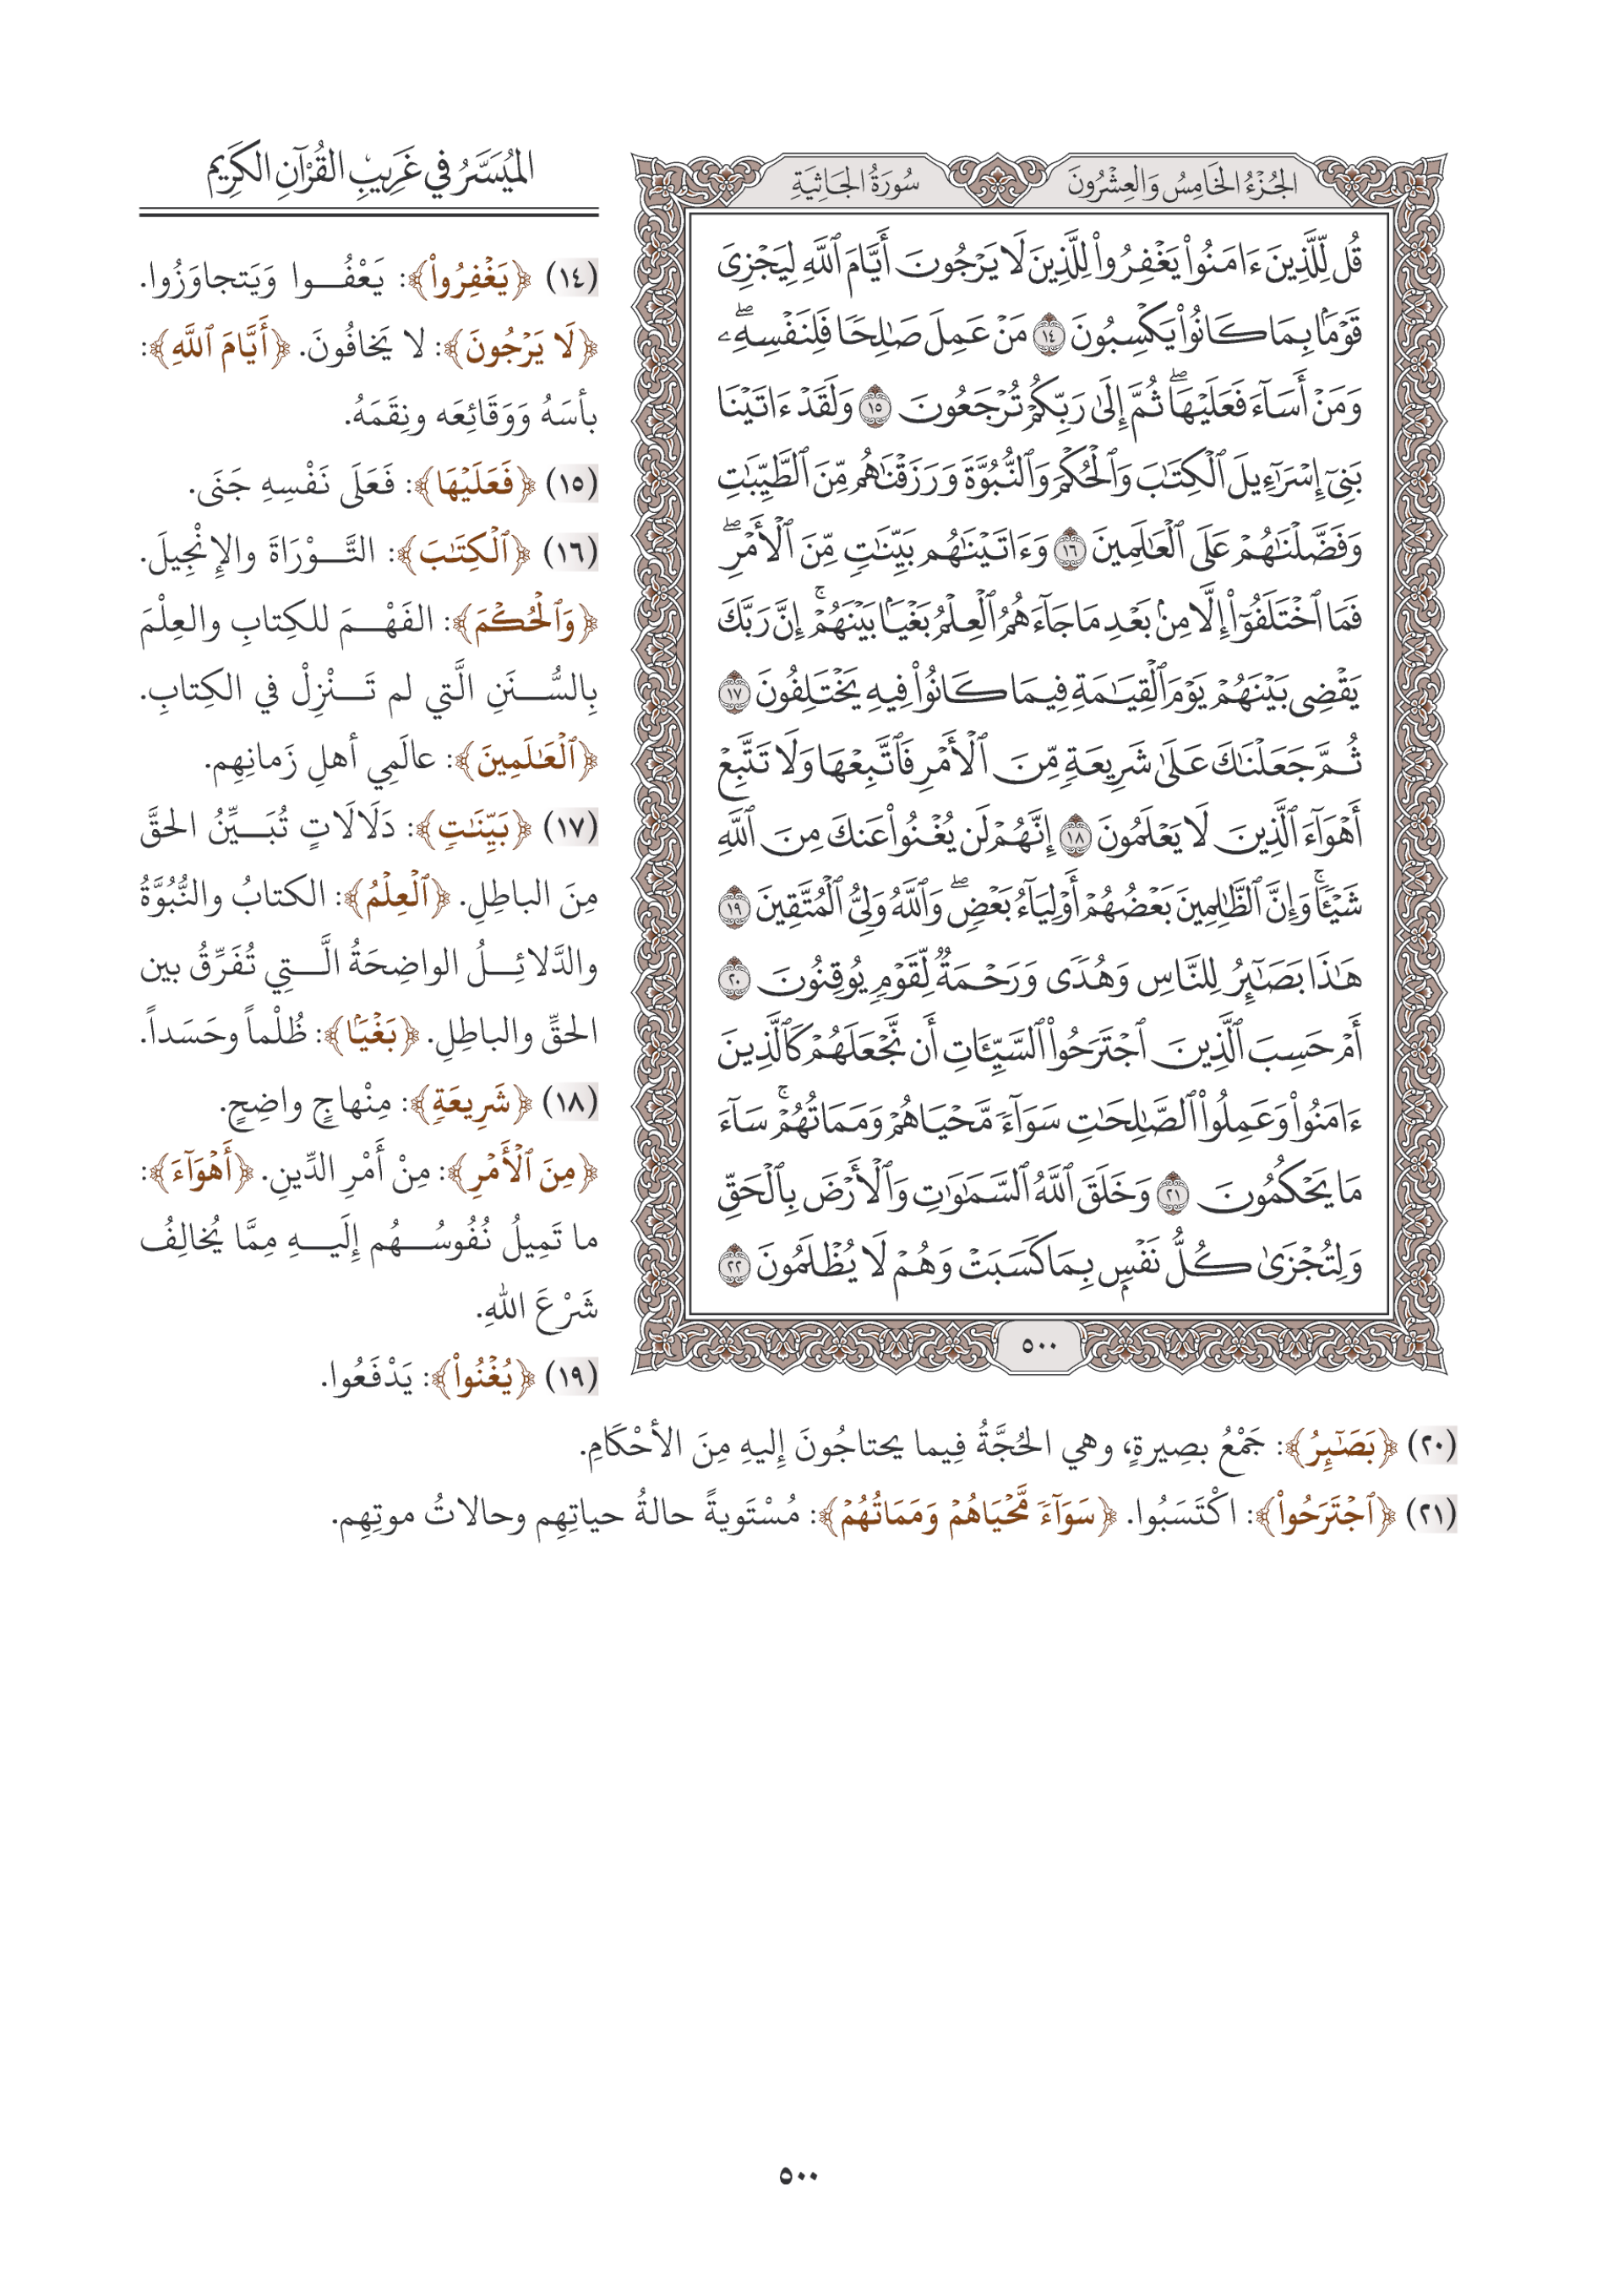 الجُزْءُ الخَامِسُ وَالعِشْرُونَ
سُورَةُ الجَاثِيَةِ
قُل لِّلَّذِينَ ءَامَنُوا۟ يَغْفِرُوا۟ لِلَّذِينَ لَا يَرْجُونَ أَيَّامَ ٱللَّهِ لِيَجْزِىَ
قَوْمَۢا بِمَا كَانُوا۟ يَكْسِبُونَ ١٤ مَنْ عَمِلَ صَـٰلِحًا فَلِنَفْسِهِۦۖ
وَمَنْ أَسَآءَ فَعَلَيْهَاۖ ثُمَّ إِلَىٰ رَبِّكُمْ تُرْجَعُونَ ١٥ وَلَقَدْ ءَاتَيْنَا
بَنِىٓ إِسْرَٰٓءِيلَ ٱلْكِتَـٰبَ وَٱلْحُكْمَ وَٱلنُّبُوَّةَ وَرَزَقْنَـٰهُم مِّنَ ٱلطَّيِّبَـٰتِ
وَفَضَّلْنَـٰهُمْ عَلَى ٱلْعَـٰلَمِينَ ١٦ وَءَاتَيْنَـٰهُم بَيِّنَـٰتٍ مِّنَ ٱلْأَمْرِۖ
فَمَا ٱخْتَلَفُوٓا۟ إِلَّا مِنۢ بَعْدِ مَا جَآءَهُمُ ٱلْعِلْمُ بَغْيَۢا بَيْنَهُمْۚ إِنَّ رَبَّكَ
يَقْضِى بَيْنَهُمْ يَوْمَ ٱلْقِيَـٰمَةِ فِيمَا كَانُوا۟ فِيهِ يَخْتَلِفُونَ ١٧
ثُمَّ جَعَلْنَـٰكَ عَلَىٰ شَرِيعَةٍ مِّنَ ٱلْأَمْرِ فَٱتَّبِعْهَا وَلَا تَتَّبِعْ
أَهْوَآءَ ٱلَّذِينَ لَا يَعْلَمُونَ ١٨ إِنَّهُمْ لَن يُغْنُوا۟ عَنكَ مِنَ ٱللَّهِ
شَيْـًٔاۚ وَإِنَّ ٱلظَّـٰلِمِينَ بَعْضُهُمْ أَوْلِيَآءُ بَعْضٍۖ وَٱللَّهُ وَلِىُّ ٱلْمُتَّقِينَ ١٩
هَـٰذَا بَصَـٰٓئِرُ لِلنَّاسِ وَهُدًى وَرَحْمَةٌ لِّقَوْمٍ يُوقِنُونَ ٢٠
أَمْ حَسِبَ ٱلَّذِينَ ٱجْتَرَحُوا۟ ٱلسَّيِّـَٔاتِ أَن نَّجْعَلَهُمْ كَٱلَّذِينَ
ءَامَنُوا۟ وَعَمِلُوا۟ ٱلصَّـٰلِحَـٰتِ سَوَآءً مَّحْيَاهُمْ وَمَمَاتُهُمْۚ سَآءَ
مَا يَحْكُمُونَ ٢١ وَخَلَقَ ٱللَّهُ ٱلسَّمَـٰوَٰتِ وَٱلْأَرْضَ بِٱلْحَقِّ
وَلِتُجْزَىٰ كُلُّ نَفْسٍۭ بِمَا كَسَبَتْ وَهُمْ لَا يُظْلَمُونَ ٢٢
٥٠٠
المُيَسَّرُ في غَرِيبِ القُرْآنِ الكَرِيمِ
(١٤) ﴿يَغْفِرُوا۟﴾: يَعْفُـــوا وَيَتجاوَزُوا.
﴿لَا يَرْجُونَ﴾: لا يَخافُونَ. ﴿أَيَّامَ ٱللَّهِ﴾:
بأسَهُ وَوَقَائِعَه ونِقَمَهُ.
(١٥) ﴿فَعَلَيْهَا﴾: فَعَلَى نَفْسِهِ جَنَى.
(١٦) ﴿ٱلْكِتَـٰبَ﴾: التَّـــوْرَاةَ والإِنْجِيلَ.
﴿وَٱلْحُكْمَ﴾: الفَهْـــمَ للكِتابِ والعِلْمَ
بِالسُّـــنَنِ الَّتي لم تَـــنْزِلْ في الكِتابِ.
﴿ٱلْعَـٰلَمِينَ﴾: عالَمِي أهلِ زَمانِهِم.
(١٧) ﴿بَيِّنَـٰتٍ﴾: دَلَالَاتٍ تُبَـــيِّنُ الحقَّ
مِنَ الباطِلِ. ﴿ٱلْعِلْمُ﴾: الكتابُ والنُّبُوَّةُ
والدَّلائِـــلُ الواضِحَةُ الَّـــتِي تُفَرِّقُ بين
الحقِّ والباطِلِ. ﴿بَغْيَۢا﴾: ظُلْماً وحَسَداً.
(١٨) ﴿شَرِيعَةٍ﴾: مِنْهاجٍ واضِحٍ.
﴿مِنَ ٱلْأَمْرِ﴾: مِنْ أَمْرِ الدِّينِ. ﴿أَهْوَآءَ﴾:
ما تَمِيلُ نُفُوسُـــهُم إِلَيـــهِ مِمَّا يُخالِفُ
شَرْعَ اللهِ.
(١٩) ﴿يُغْنُوا۟﴾: يَدْفَعُوا.
(٢٠) ﴿بَصَـٰٓئِرُ﴾: جَمْعُ بصِيرةٍ، وهي الحُجَّةُ فِيما يحتاجُونَ إِليهِ مِنَ الأحْكَامِ.
(٢١) ﴿ٱجْتَرَحُوا۟﴾: اكْتَسَبُوا. ﴿سَوَآءً مَّحْيَاهُمْ وَمَمَاتُهُمْ﴾: مُسْتَويةً حالةُ حياتِهِم وحالاتُ موتِهِم.
٥٠٠